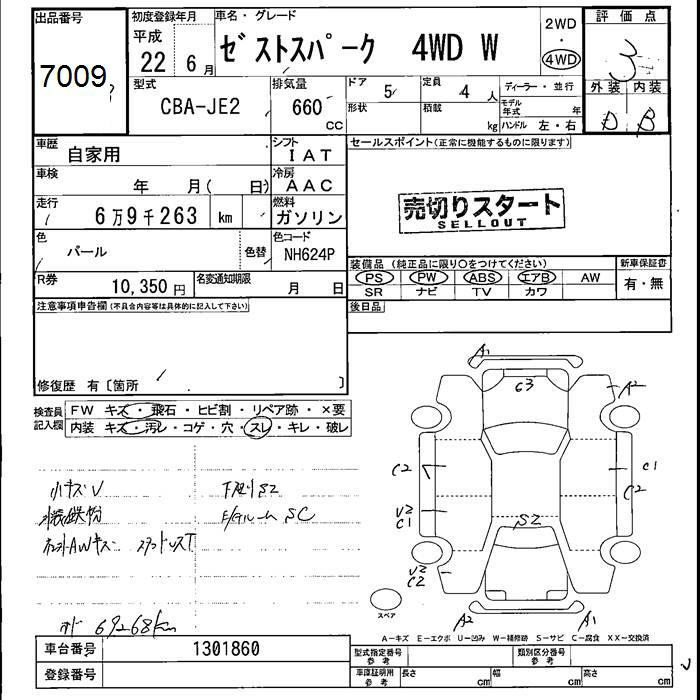 出品番号 初度登録年月 車名・グレード 2WD 評価点
7009 平成 22年 6月 ゼストスパーク 4WD W ・ 3
4WD
型式 排気量 ドア 5 定員 4人 ディーラー・並行 外装 内装
CBA-JE2 660cc 形状 積載 kg モデル年式 年 D B
ハンドル 左・右
車歴 自家用 シフト IAT セールスポイント(正常に機能するものに限ります)
車検 年 月( 日) 冷房 AAC
走行 6万9千263 km 燃料 ガソリン 売切りスタート
SELLOUT
色 パール 色替 色コード NH624P
装備品 (純正品に限り○をつけてください) 新車保証書
R券 10,350円 名変通知期限 月 日 PS PW ABS エアB AW 有・無
SR ナビ TV カワ
注意事項申告欄(不具合内容等は具体的に記入して下さい) 後日品
修復歴 有〔箇所 〕
検査員記入欄 FW キズ・飛石・ヒビ割・リペア跡・×要
内装 キズ・汚レ・コゲ・穴・スレ・キレ・破レ
小キズV 下廻りS2
鉄粉 E/gルームSC
AWキズ スタッドレスT
69268km
A1
G3 A2
C2 C1
C2
V2
C1
S2
V2
C2
スペア A2 A1
A-キズ E-エクボ U-凹み W-補修跡 S-サビ C-腐食 XX-交換済
車台番号 1301860 型式指定番号 参考 類別区分番号 参考
登録番号 車庫証明用 参考 長さ cm 幅 cm 高さ cm